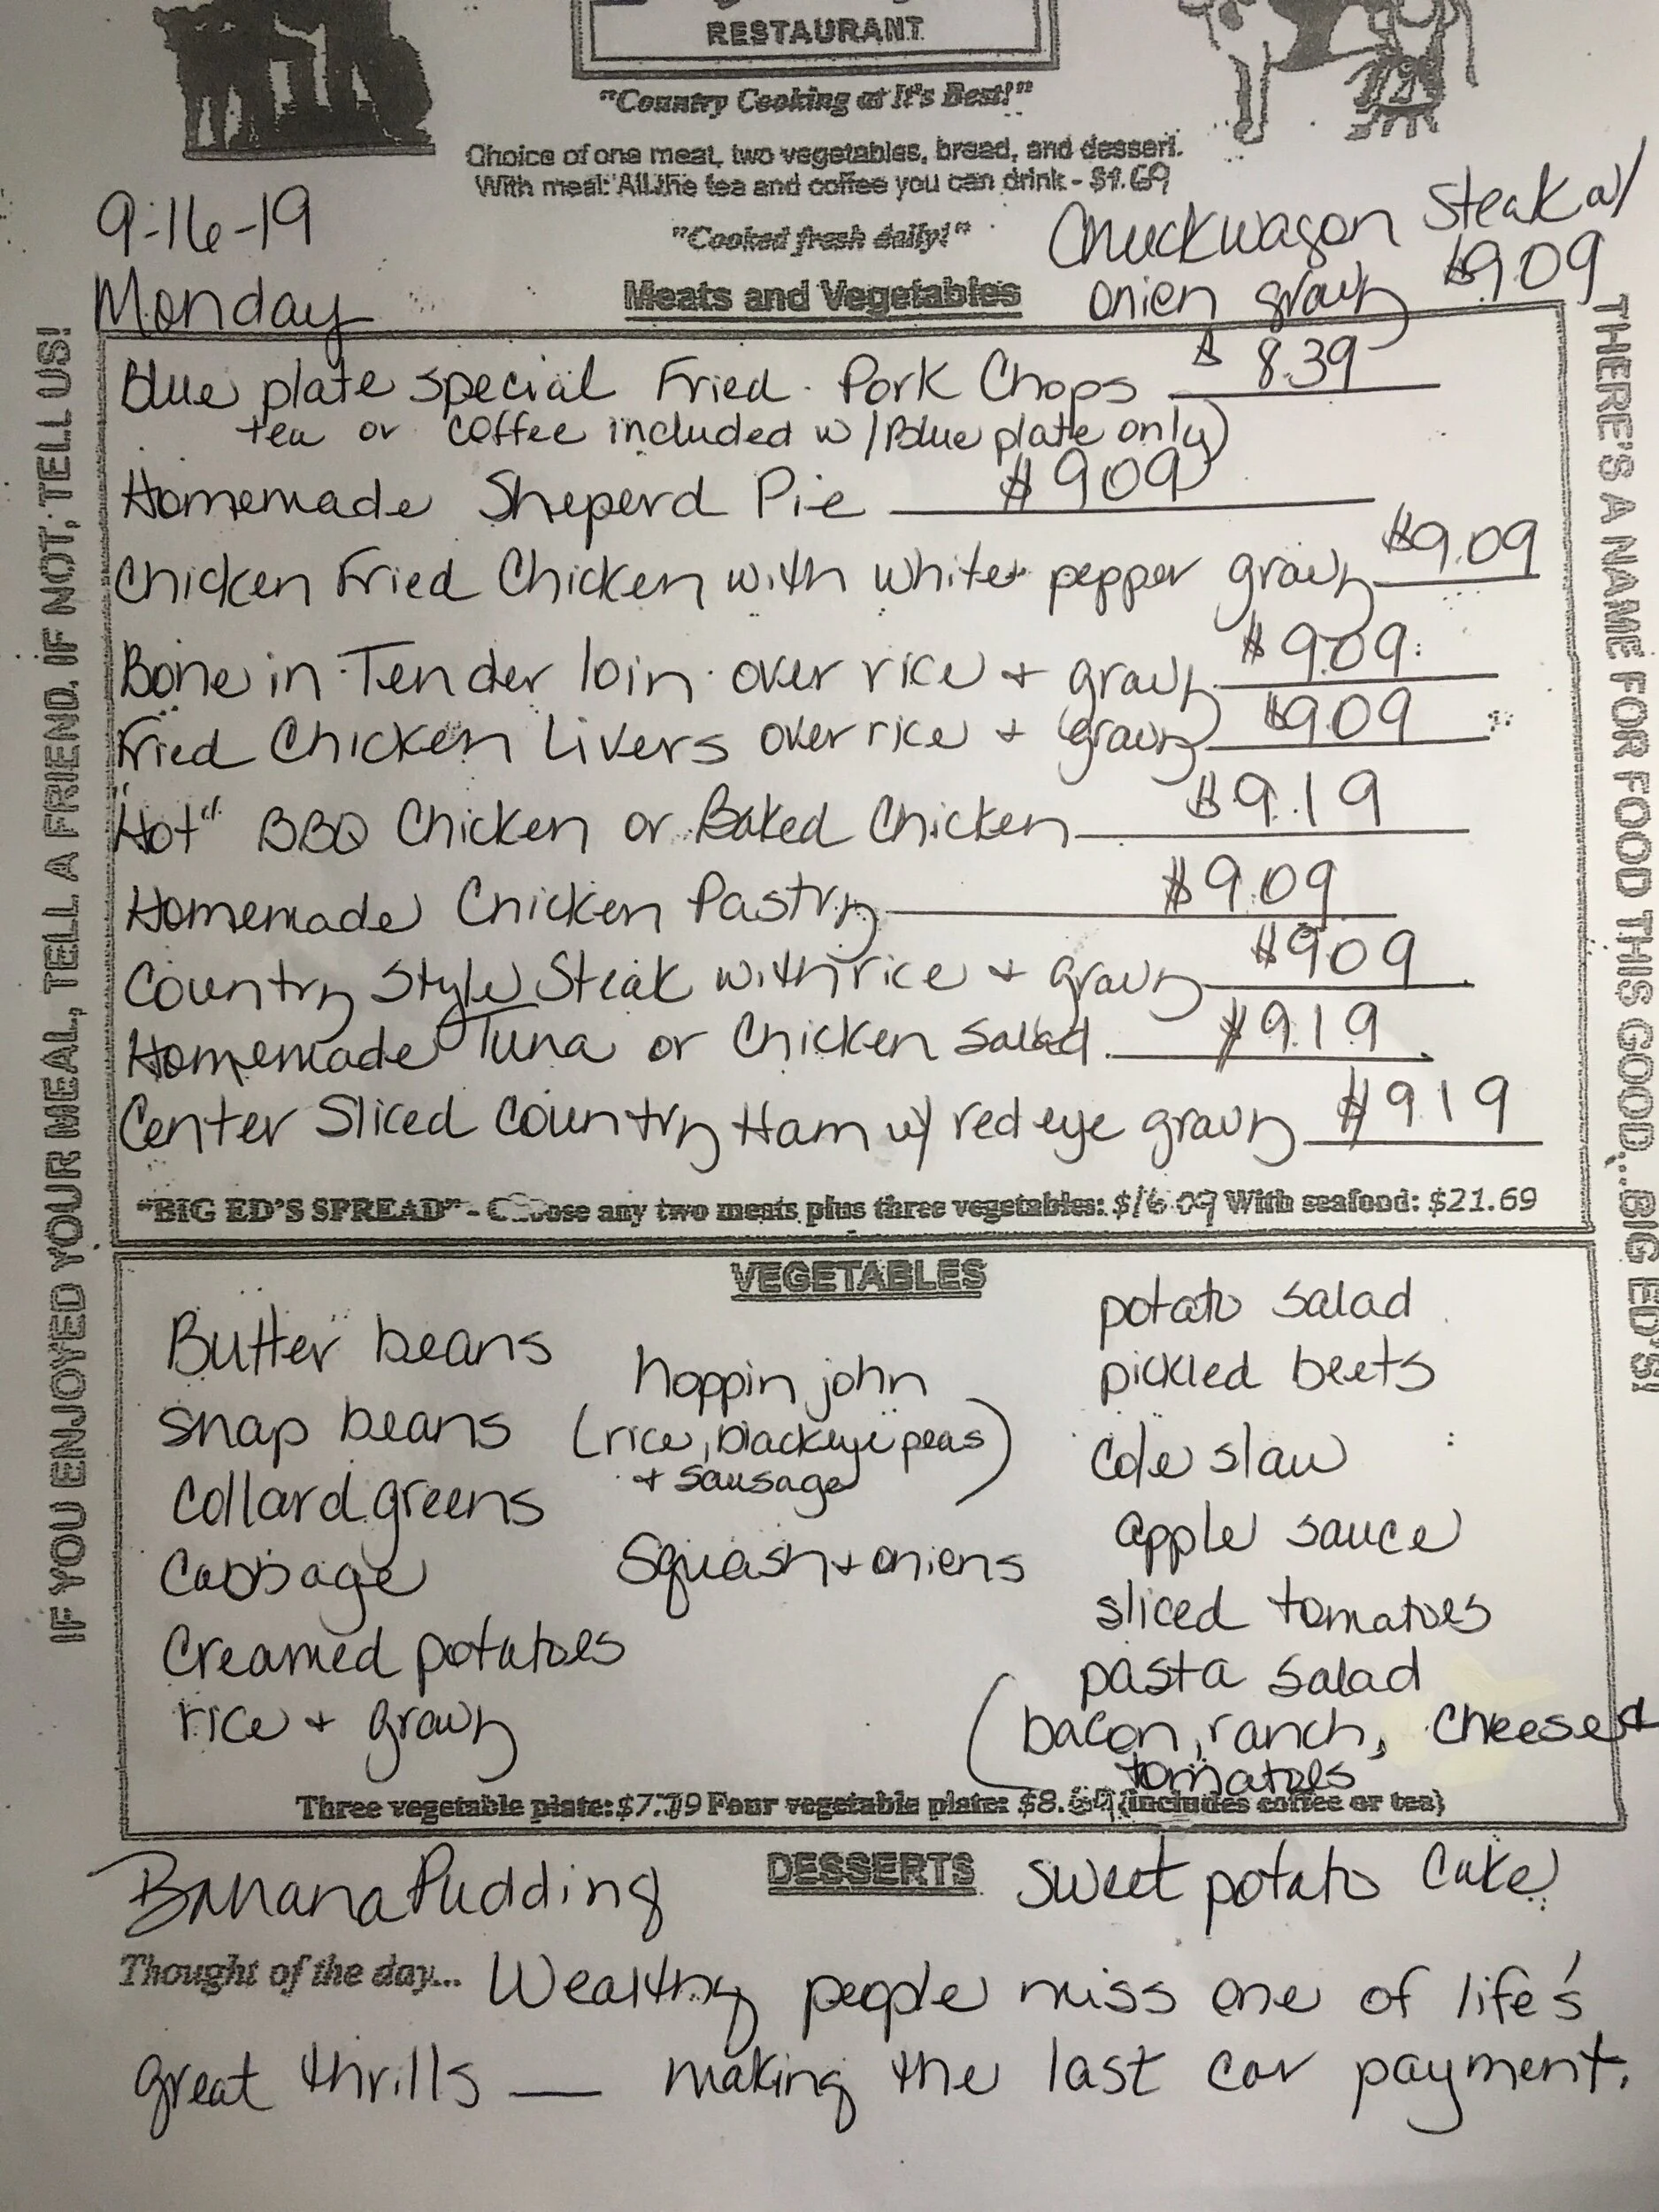 RESTAURANT
"Country Cooking at It's Best!"
Choice of one meat, two vegetables, bread, and dessert.
With meal: All the tea and coffee you can drink - $1.69
"Cooked fresh daily!"
9-16-19
Monday
Chuckwagon Steak w/
onion gravy $9.09
Meats and Vegetables
Blue plate special Fried Pork Chops $8.39
tea or coffee included w/Blue plate only)
Homemade Sheperd Pie $9.09
Chicken Fried Chicken with white pepper gravy $9.09
Bone in Tender loin over rice + gravy $9.09
Fried Chicken Livers over rice + gravy $9.09
"Hot" BBQ Chicken or Baked Chicken $9.19
Homemade Chicken Pastry $9.09
Country Style Steak with rice + gravy $9.09
Homemade Tuna or Chicken Salad $9.19
Center Sliced Country Ham w/ red eye gravy $9.19
"BIG ED'S SPREAD" - Choose any two meats plus three vegetables: $16.09 With seafood: $21.69
IF YOU ENJOYED YOUR MEAL, TELL A FRIEND. IF NOT, TELL US!
THERE'S A NAME FOR FOOD THIS GOOD...BIG ED'S!
VEGETABLES
Butter beans
snap beans
Collard greens
Cabbage
Creamed potatoes
rice + gravy
hoppin john
(rice, blackeye peas
+ sausage)
Squash + onions
potato salad
pickled beets
Cole slaw
apple sauce
sliced tomatoes
pasta salad
(bacon, ranch, cheese &
tomatoes
Three vegetable plate: $7.79 Four vegetable plate: (includes coffee or tea)
DESSERTS
Banana Pudding
sweet potato Cake
Thought of the day... Wealthy people miss one of life's
great thrills — making the last car payment.